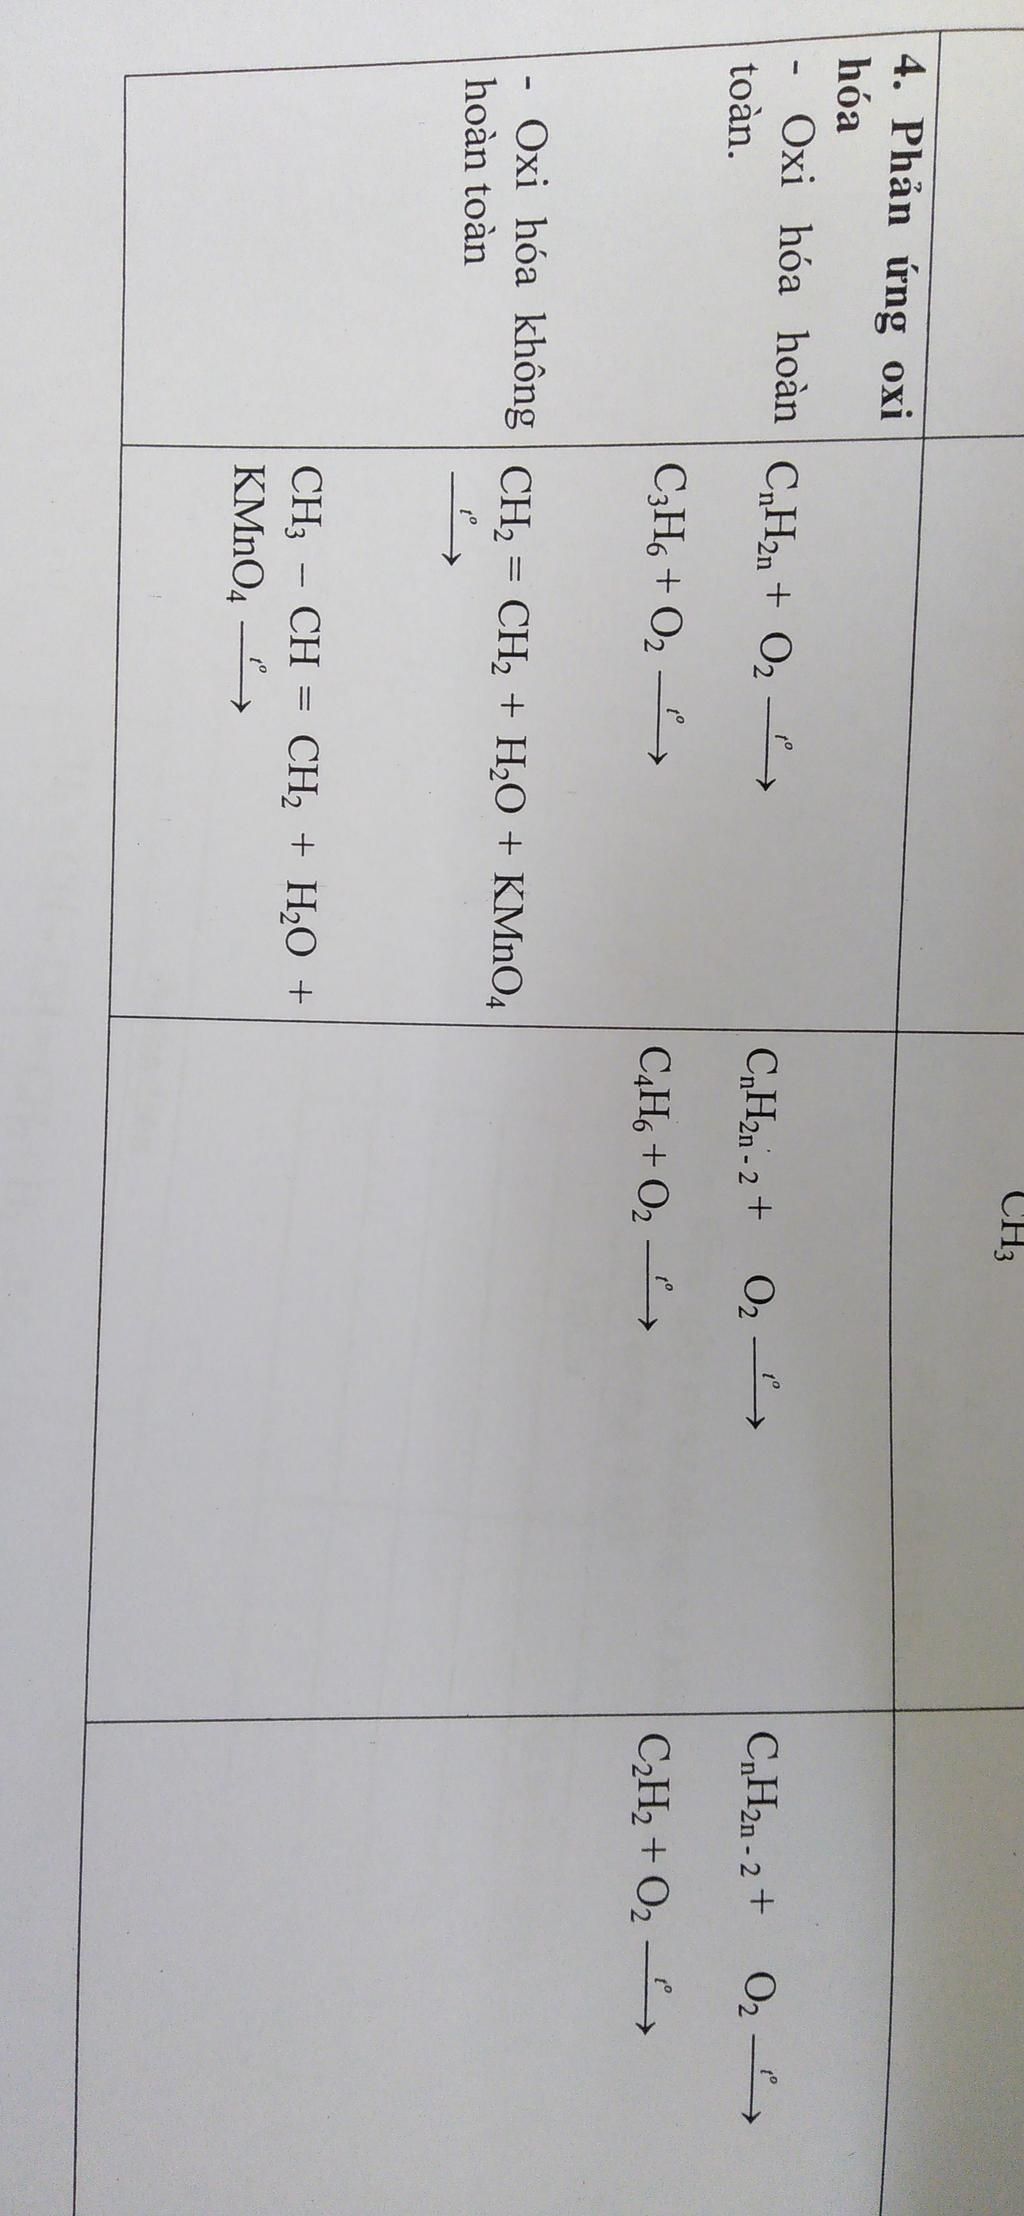 CH₃
4. Phản ứng oxi
hóa
- Oxi hóa hoàn
toàn.
- Oxi hóa không
hoàn toàn
CₙH₂ₙ + O₂ —t°→
C₃H₆ + O₂ —t°→
CH₂ = CH₂ + H₂O + KMnO₄
—t°→
CH₃ – CH = CH₂ + H₂O +
KMnO₄ —t°→
CₙH₂ₙ₋₂ + O₂ —t°→
C₄H₆ + O₂ —t°→
CₙH₂ₙ₋₂ + O₂ —t°→
C₂H₂ + O₂ —t°→